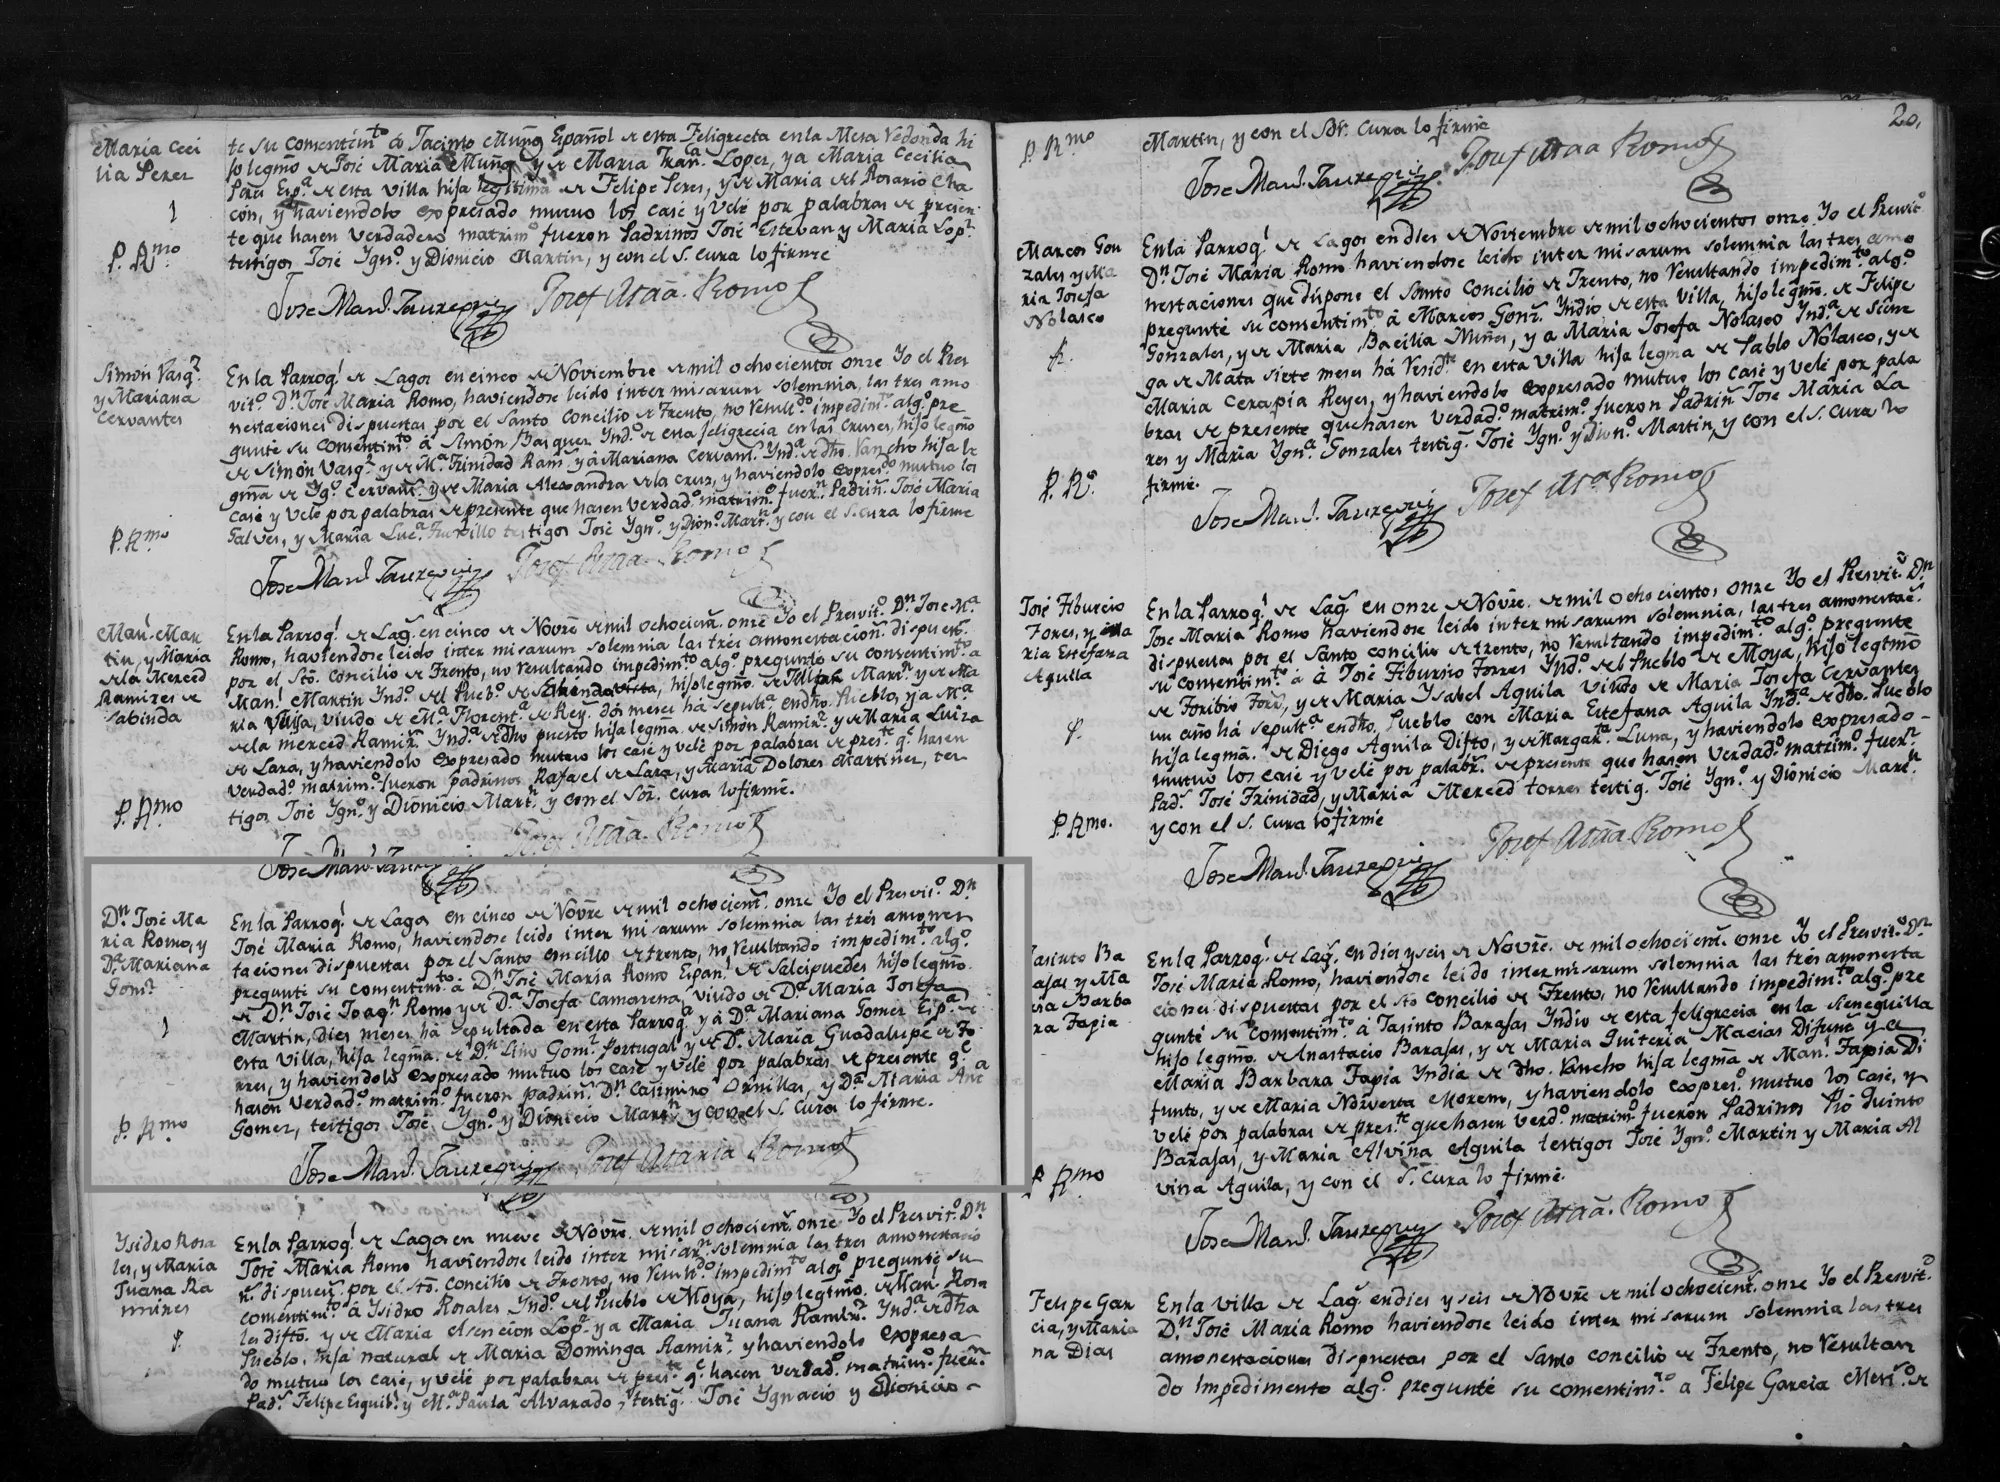 Maria Ceci
lia Perez
1
P. Rmo.
te su consentimto. á Jacinto Muños Español de esta Feligrecia en la Mesa Redonda hi
jo legmo de José Maria Muños y de Maria Fran.ca Lopes, y a Maria Cecilia
Peres Esp.a de esta villa hija legitima de Felipe Peres, y de Maria del Rosario Cha
con, y haviendolo expresado mutuo los casé y Velé por palabras de presen
te que hasen verdadero matrimo. fueron Padrinos José Estevan y Maria Lop.z
testigos José Ygno. y Dionicio Martin, y con el S. Cura lo firmé
Jose Manl. Jauregui Josef Maa. Romo
Simon Vasq.z
y Mariana
Cervantes
P. Rmo
En la Parroql. de Lagos en cinco de Noviembre de mil ochocientos onze Yo el Pres
vito. Dn. José Maria Romo, haviendose leido inter misarum solemnia, las tres amo
nestaciones dispuestas por el Santo Concilio de Trento, no Resultdo. impedimto. algo. pre
gunté su consentimto. á Simon Basques Yndo. de esta feligrecia en las Cruses, hijo legmo
de Simon Vasqz. y de Ma. Trinidad Ram.s y á Mariana Cervant.s Ynda. de dho. Rancho hija le
gma de Ygo. Cervants. y de Maria Alexandra de la Cruz, y haviendolo expresdo. mutuo los
casé y Velé por palabras de presente que hasen verdado. matrimo. fuern. Padrin.s José Maria
Galves, y Maria Luca. testigos José Ygno. y Diono. Martn. y con el S. Cura lo firmé
Jose Manl. Jauregui Josef Maa. Romo
Manl. Mar
tin, y Maria
de la Merced
Ramires de
Sabinda
P. Rmo
En la Parroql. de Lag.s en cinco de Novre de mil ochocient.s onze Yo el Presvito. Dn. Jose Ma.
Romo, haviendose leido inter misarum solemnia las tres amonestacion.s dispuest.s
por el Sto. Concilio de Trento, no Resultando impedimto. algo. pregunté su consentimto. a
Manl. Martin Yndo. del Pueblo de hijo legmo. de Martn. y de Ma
ria viudo de Ma. Florenta. de Rey.s dos meses há sepulta. en dho. Pueblo, y a Ma.
de la merced Ramirz. Ynda. de dho puesto hija legma. de Simon Ramirz. y de Maria Luiza
de Lara, y haviendolo expresado mutuo los casé y velé por palabras de preste. qe. hasen
verdado. matrimo. fueron padrinos Rafael de Lara, y Maria Dolores Martines, tes
tigos José Ygno. y Dionicio Martn. y con el Sor. Cura lo firmé.
Jose Manl. Jauregui Josef Maa. Romo
Dn. José Ma
ria Romo, y
Da. Mariana
Gomz.
1
P. Rmo
En la Parroql. de Lagos en cinco de Novre de mil ochocient.s onze Yo el Presvito. Dn.
José Maria Romo, haviendose leido inter misarum solemnia las tres amones
taciones dispuestas por el Santo concilio de trento, no Resultando impedimto. algo.
pregunté su consentimto. á Dn. José Maria Romo Espanl. de Salcipuedes hijo legmo.
de Dn. José Joaqn. Romo y de Da. Josefa Camarena, viudo de Da. Maria Josefa
Martin, dies meses há sepultada en esta Parroqa. y á Da. Mariana Gomes Espa. de
esta villa, hija legma. de Dn. Lino Gomz. Portugal y de Da. Maria Guadalupe de To
rres, y haviendolo expresado mutuo los casé y velé por palabras de presente qe.
hasen verdado. matrimo. fueron padrin.s Dn. Casimiro Ornillas, y Da. Maria Ana
Gomes, testigos José Ygno. y Dionicio Martn. y con el S. Cura lo firmé.
Jose Manl. Jauregui Josef Maria Romo
Ysidro Rosa
les, y Maria
Juana Ra
mires
P.
En la Parroql. de Lagos en nueve de Novre. de mil ochocient.s onze Yo el Presvito. Dn.
José Maria Romo haviendose leido inter misarn. solemnia las tres amonestacio
n.s dispues.s por el Sto. Concilio de Trento, no Resultdo. impedimto. algo. pregunté su
consentimto. á Ysidro Rosales Yndo. del Pueblo de Moya, hijo legtmo. de Manl. Rosa
les difto. y de Maria Asencion Lopz. y a Maria Juana Ramirz. Ynda. de dho
Pueblo, hija natural de Maria Dominga Ramirz. y haviendolo expresa
do mutuo los casé, y velé por palabras de preste. qe. hacen verdado. matrimo. fuern.
Pad.s Felipe Esquibl. y Ma. Paula Alvarado, testig.s José Ygnacio y Dionicio
20.
P. Rmo
Martin, y con el Sor. Cura lo firmé
Jose Manl. Jauregui Josef Maa Romo
Marcos Gon
zales y Ma
ria Josefa
Nolasco
P. Ro.
En la Parroql. de Lagos en dies de Noviembre de mil ochocientos onze Yo el Presvito.
Dn. José Maria Romo haviendose leido inter misarum solemnia las tres amo
nestaciones que dispone el Santo Concilio de Trento, no Resultando impedimto. algo.
pregunté su consentimto á Marcos Gonz. Yndio de esta villa, hijo legmo. de Felipe
Gonzales, y de Maria Bacilia Muñes, y a Maria Josefa Nolasco Ynda. de Siene
ga de Mata siete meses há Residte. en esta Villa hija legma de Pablo Nolasco, y de
Maria Cerapia Reyes, y haviendolo expresado mutuo los casé y Velé por pala
bras de presente que hasen verdado. matrimo. fueron Padrin.s Jose Maria La
res y Maria Ygna. Gonzales testig.s José Ygno. y Diono. Martin, y con el S. Cura lo
firmé.
Jose Manl. Jauregui Josef Maa Romo
José Tiburcio
Torres, y Ma
ria Estefana
Aguila
P.
P. Rmo.
En la Parroql. de Lag.s en onze de Novre. de mil ochocientos onze Yo el Presvito. Dn.
Jose Maria Romo haviendose leido inter misarum solemnia, las tres amonestac.s
dispuestas por el Santo concilio de trento, no Resultando impedimto. algo. pregunté
su consentimto. á á José Tiburcio Torres Yndo. del Pueblo de Moya, hijo legtmo
de Toribio Torrs. y de Maria Ysabel Aguila Viudo de Maria Josefa Cervantes
un año há sepulta. en dho. Pueblo con Maria Estefana Aguila Ynda. de dho. Pueblo
hija legma. de Diego Aguila Difto, y de Margarta. Luna, y haviendolo expresado
mutuo los casé y Velé por palabr.s de presente que hasen verdado. matrimo. fuern.
Pad.s José Trinidad, y Maria Merced torres testig.s José Ygno. y Dionicio Martn.
y con el S. Cura lo firmé
Jose Manl. Jauregui Josef Maa Romo
Jasinto Ba
rajas y Ma
ria Barba
ra Tapia
P. Rmo
En la Parroql. de Lag.s en dies y seis de Novre. de mil ochocient.s onze Yo el Presvito. Dn.
José Maria Romo, haviendose leido inter misarum solemnia las tres amonesta
ciones dispuestas por el Sto Concilio de Trento, no Resultando impedimto. algo. pre
gunté su consentimto á Jasinto Barajas Yndio de esta feligrecia en la Sieneguilla
hijo legmo. de Anastacio Barajas, y de Maria Quiteria Macias Difunt.s y a
Maria Barbara Tapia Yndia de dho. Rancho hija legma de Manl. Tapia Di
funto, y de Maria Norverta Moreno, y haviendolo expreso. mutuo los casé, y
velé por palabras de preste. que hasen verdo. matrimo. fueron Padrinos Pio Quinto
Barajas, y Maria Alvina Aguila testigos José Ygno. Martin y Maria Al
vina Aguila, y con el S. Cura lo firmé.
Jose Manl. Jauregui Josef Maa. Romo
Felipe Gar
cia, y Maria
na Dias
En la Villa de Lag.s en dies y seis de Novre de mil ochocient.s onze Yo el Presvito.
Dn. José Maria Romo haviendose leido inter misarum solemnia las tres
amonestaciones dispuestas por el Santo Concilio de Trento, no Resultan
do Impedimento algo. pregunté su consentimto. a Felipe Garcia Meso. de